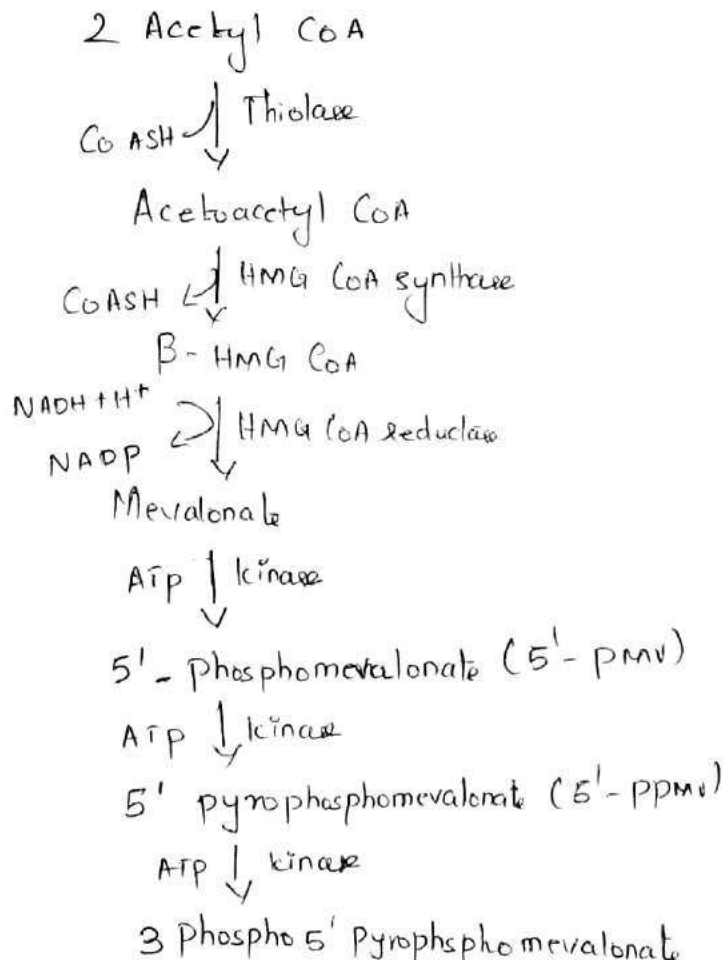 2 Acetyl CoA
CoASH Thiolase
Acetoacetyl CoA
CoASH HMG CoA synthase
β- HMG CoA
NADH + H+
NADP HMG CoA reductase
Mevalonate
ATP kinase
5'- Phosphomevalonate (5'- PMV)
ATP kinase
5' pyrophosphomevalonate (5'- PPMV)
ATP kinase
3 Phospho 5' Pyrophsphomevalonate